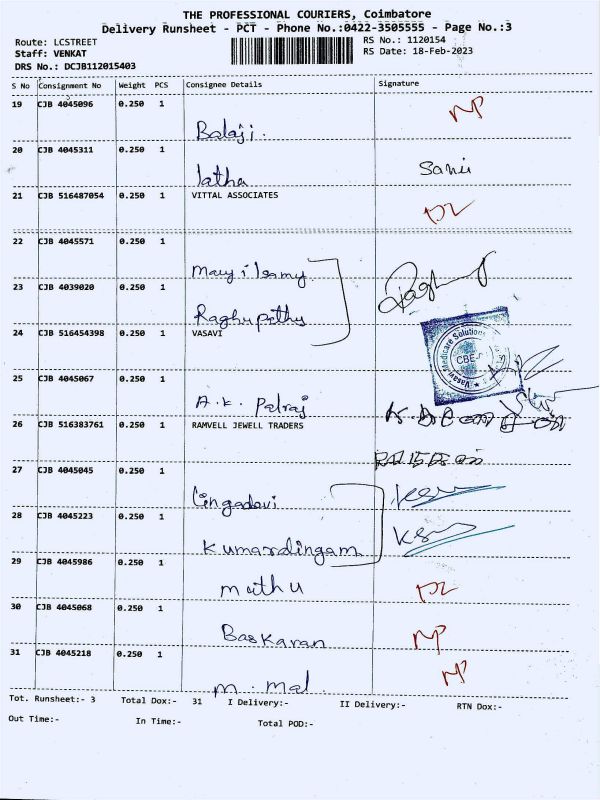 THE PROFESSIONAL COURIERS, Coimbatore
Delivery Runsheet - PCT - Phone No.:0422-3505555 - Page No.:3
Route: LCSTREET
RS No.: 1120154
Staff: VENKAT
RS Date: 18-Feb-2023
DRS No.: DCJB112015403
S No Consignment No Weight PCS Consignee Details Signature
19 CJB 4045096 0.250 1
Balaji.
20 CJB 4045311 0.250 1
latha
21 CJB 516487054 0.250 1 VITTAL ASSOCIATES
22 CJB 4045571 0.250 1
23 CJB 4039020 0.250 1
Raghupathy
24 CJB 516454398 0.250 1 VASAVI
Vasavi Medicare Solutions
CBE-
25 CJB 4045067 0.250 1
A.K. Palraj
26 CJB 516383761 0.250 1 RAMVELL JEWELL TRADERS
27 CJB 4045045 0.250 1
Lingadevi
28 CJB 4045223 0.250 1
Kumardingam
29 CJB 4045986 0.250 1
muthu
30 CJB 4045068 0.250 1
Baskaran
31 CJB 4045218 0.250 1
m. mal.
Tot. Runsheet:- 3 Total Dox:- 31 I Delivery:- II Delivery:- RTN Dox:-
Out Time:- In Time:- Total POD:-